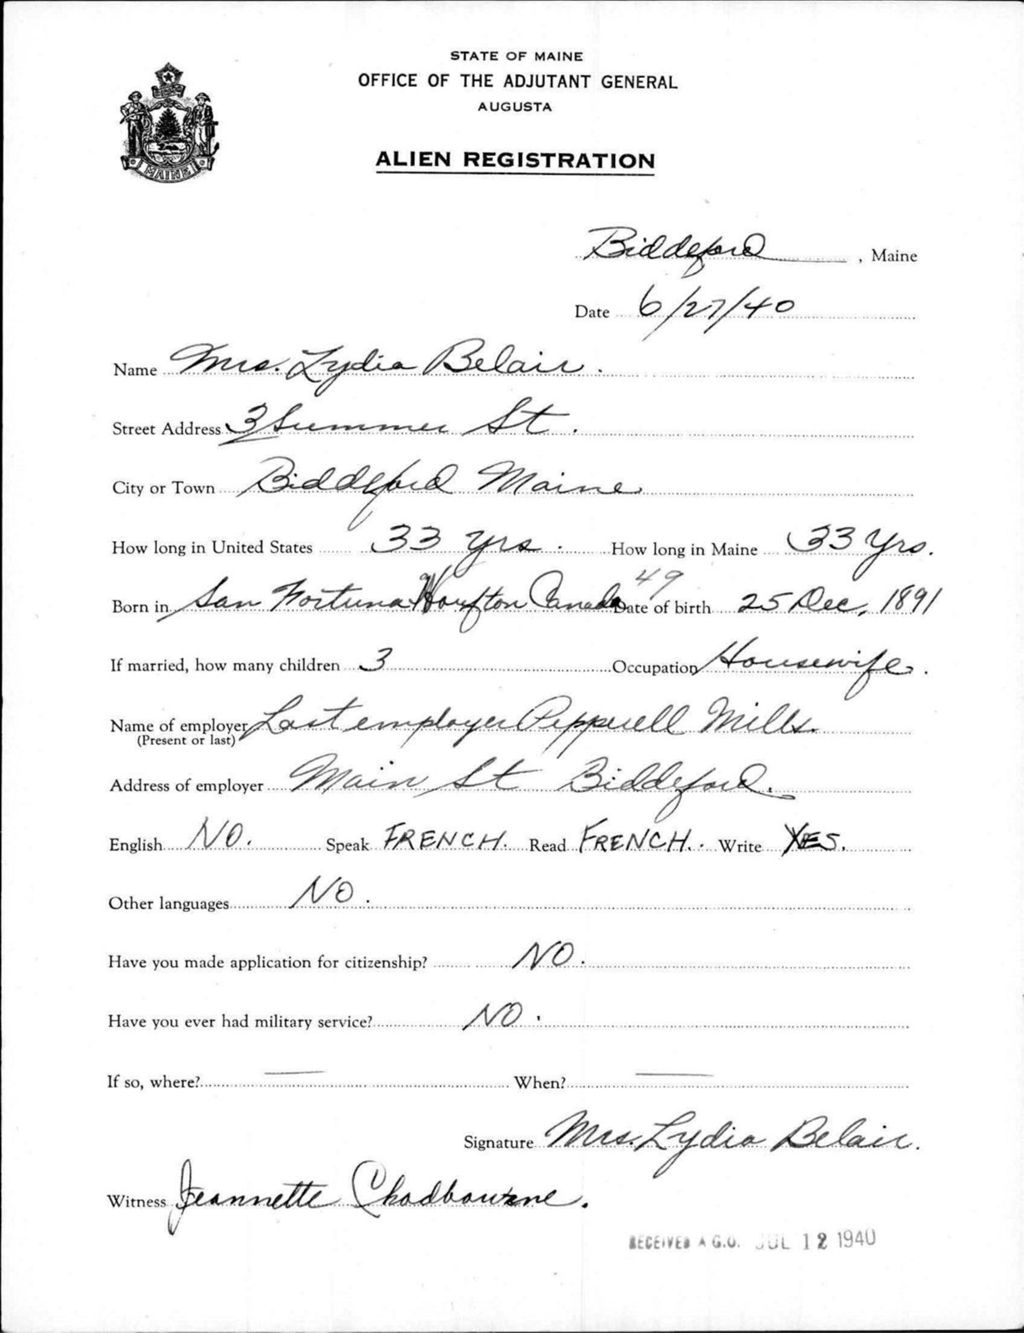 STATE OF MAINE
OFFICE OF THE ADJUTANT GENERAL
AUGUSTA
ALIEN REGISTRATION
MAINE
Biddeford, Maine
Date 6/27/40
Name Mrs. Lydia Belair.
Street Address 3 Summer St.
City or Town Biddeford Maine
How long in United States 33 yrs. How long in Maine 33 yrs.
49
Born in San Fortuna Canada Date of birth 25 Dec, 1891
If married, how many children 3 Occupation Housewife.
Name of employer Last employer Pepperell Mills.
(Present or last)
Address of employer Main St Biddeford.
English NO. Speak FRENCH. Read FRENCH. Write YES.
Other languages NO.
Have you made application for citizenship? NO.
Have you ever had military service? NO.
If so, where? — When? —
Signature Mrs. Lydia Belair.
Witness Jeannette Chadbourne.
RECEIVED A.G.O. JUL 12 1940